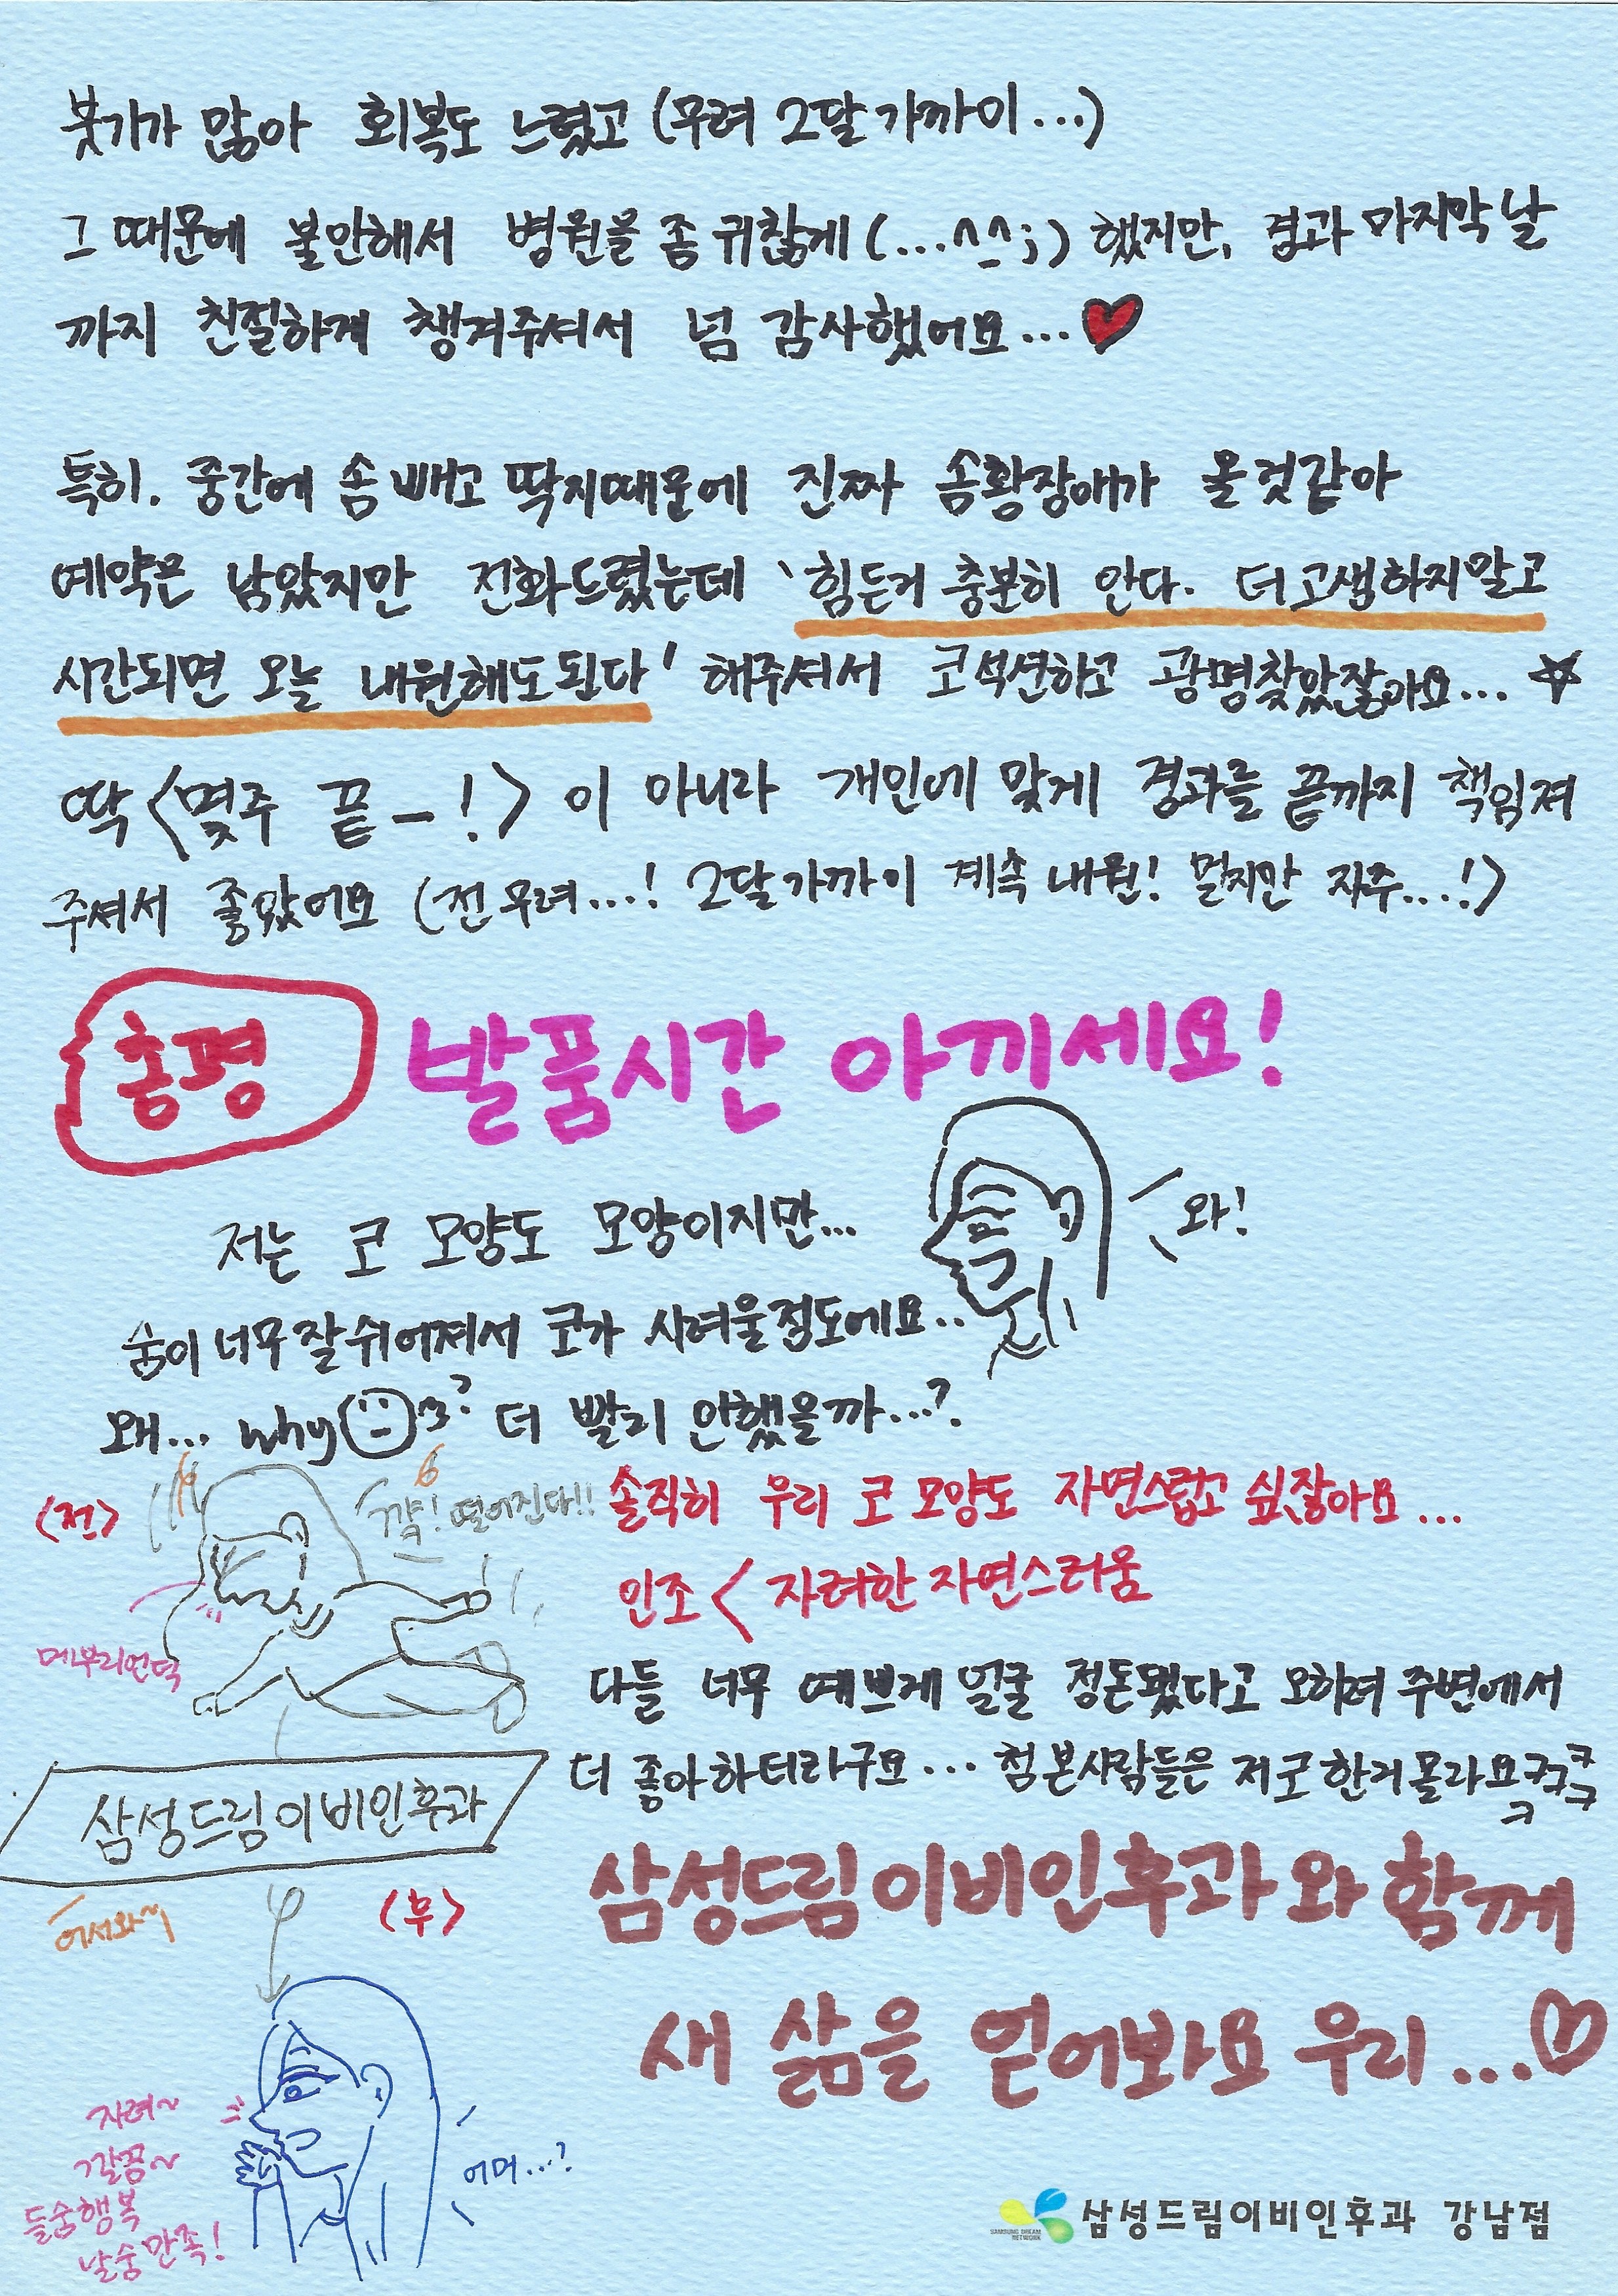 붓기가 많아 회복도 느렸고 (무려 2달 가까이...)
그 때문에 불안해서 병원을 좀 귀찮게 (...^^;) 했지만, 경과 마지막 날
까지 친절하게 챙겨주셔서 넘 감사했어요...♥
특히. 중간에 솜 빼고 딱지때문에 진짜 솜황장애가 올것같아
예약은 남았지만 전화드렸는데 '힘든거 충분히 안다. 더 고생하지말고
시간되면 오늘 내원해도된다' 해주셔서 코석션하고 광명찾았잖아요... ☆
딱 <몇주 끝-!> 이 아니라 개인에 맞게 경과를 끝까지 책임져
주셔서 좋았어요 (전 무려...! 2달 가까이 계속 내원! 멀지만 자주...!)
총평 발품시간 아끼세요!
저는 코 모양도 모양이지만...
와!
숨이 너무 잘 쉬어져서 코가 시려울정도에요..
왜... why ? 더 빨리 안했을까...?
<전>
꺅! 떨어진다!!
솔직히 우리 코 모양도 자연스럽고 싶잖아요...
인조 < 자려한 자연스러움
메부리언덕
다들 너무 예쁘게 얼굴 정돈됐다고 오히려 주변에서
더 좋아하더라구요... 첨 본사람들은 저 코 한거 몰라요 ㅋㅋㅋㅋㅋ
삼성드림이비인후과
삼성드림이비인후과와 함께
어서와~
<후>
새 삶을 얻어봐요 우리...♡
자려~
깔끔~
들숨행복
날숨만족!
어머...?
SAMSUNG DREAM NETWORK
삼성드림이비인후과 강남점